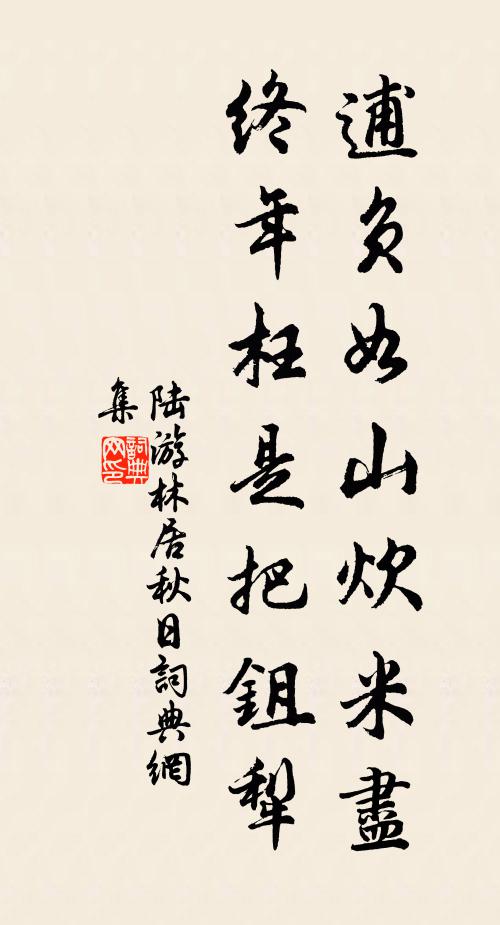 逋負如山炊米盡
終年枉是把鉏犁
陆游林居秋日詞典網
集
詞典网印